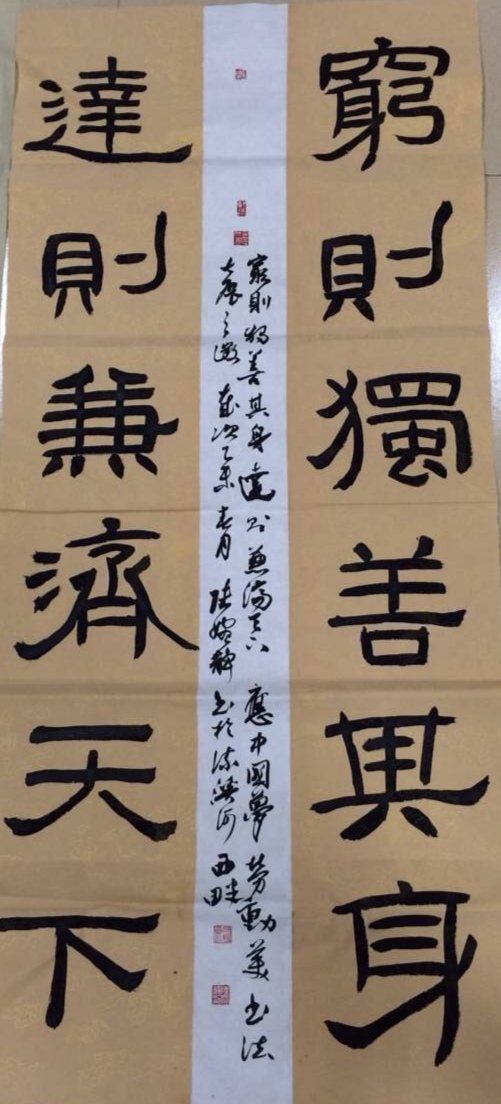 窮則獨善其身
達則兼濟天下
窮則獨善其身達則兼濟天下 應中國夢 勞動美書法
大廳之邀 歲次乙未春月 陸婉靜書於流溪河西畔